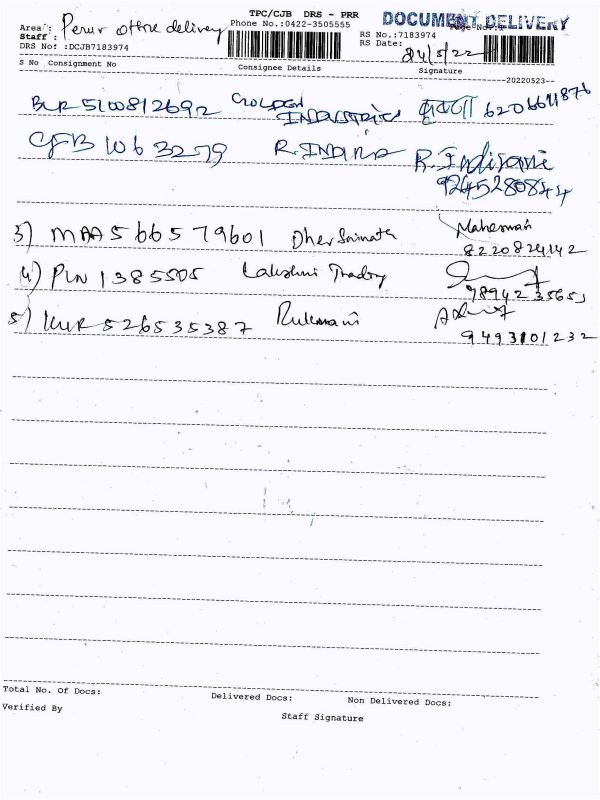 TPC/CJB DRS - PRR
DOCUMENT DELIVERY
Area : Perur office delivery
Phone No.:0422-3505555
Staff :
RS No.:7183974
DRS No: :DCJB7183974
RS Date: 24/5/22
S No Consignment No Consignee Details Signature
--20220523--
BLR 5100812692 GOLDEN INDUSTRIES
CJB 1063279 R. INDIRA R. Indirani
9245280844
3) MAA566579601
8220824142
4) PLN 1385505 Lakshmi Trading
5) KUR 526535387 Rukmani
9493101232
Total No. Of Docs: Delivered Docs: Non Delivered Docs:
Verified By
Staff Signature